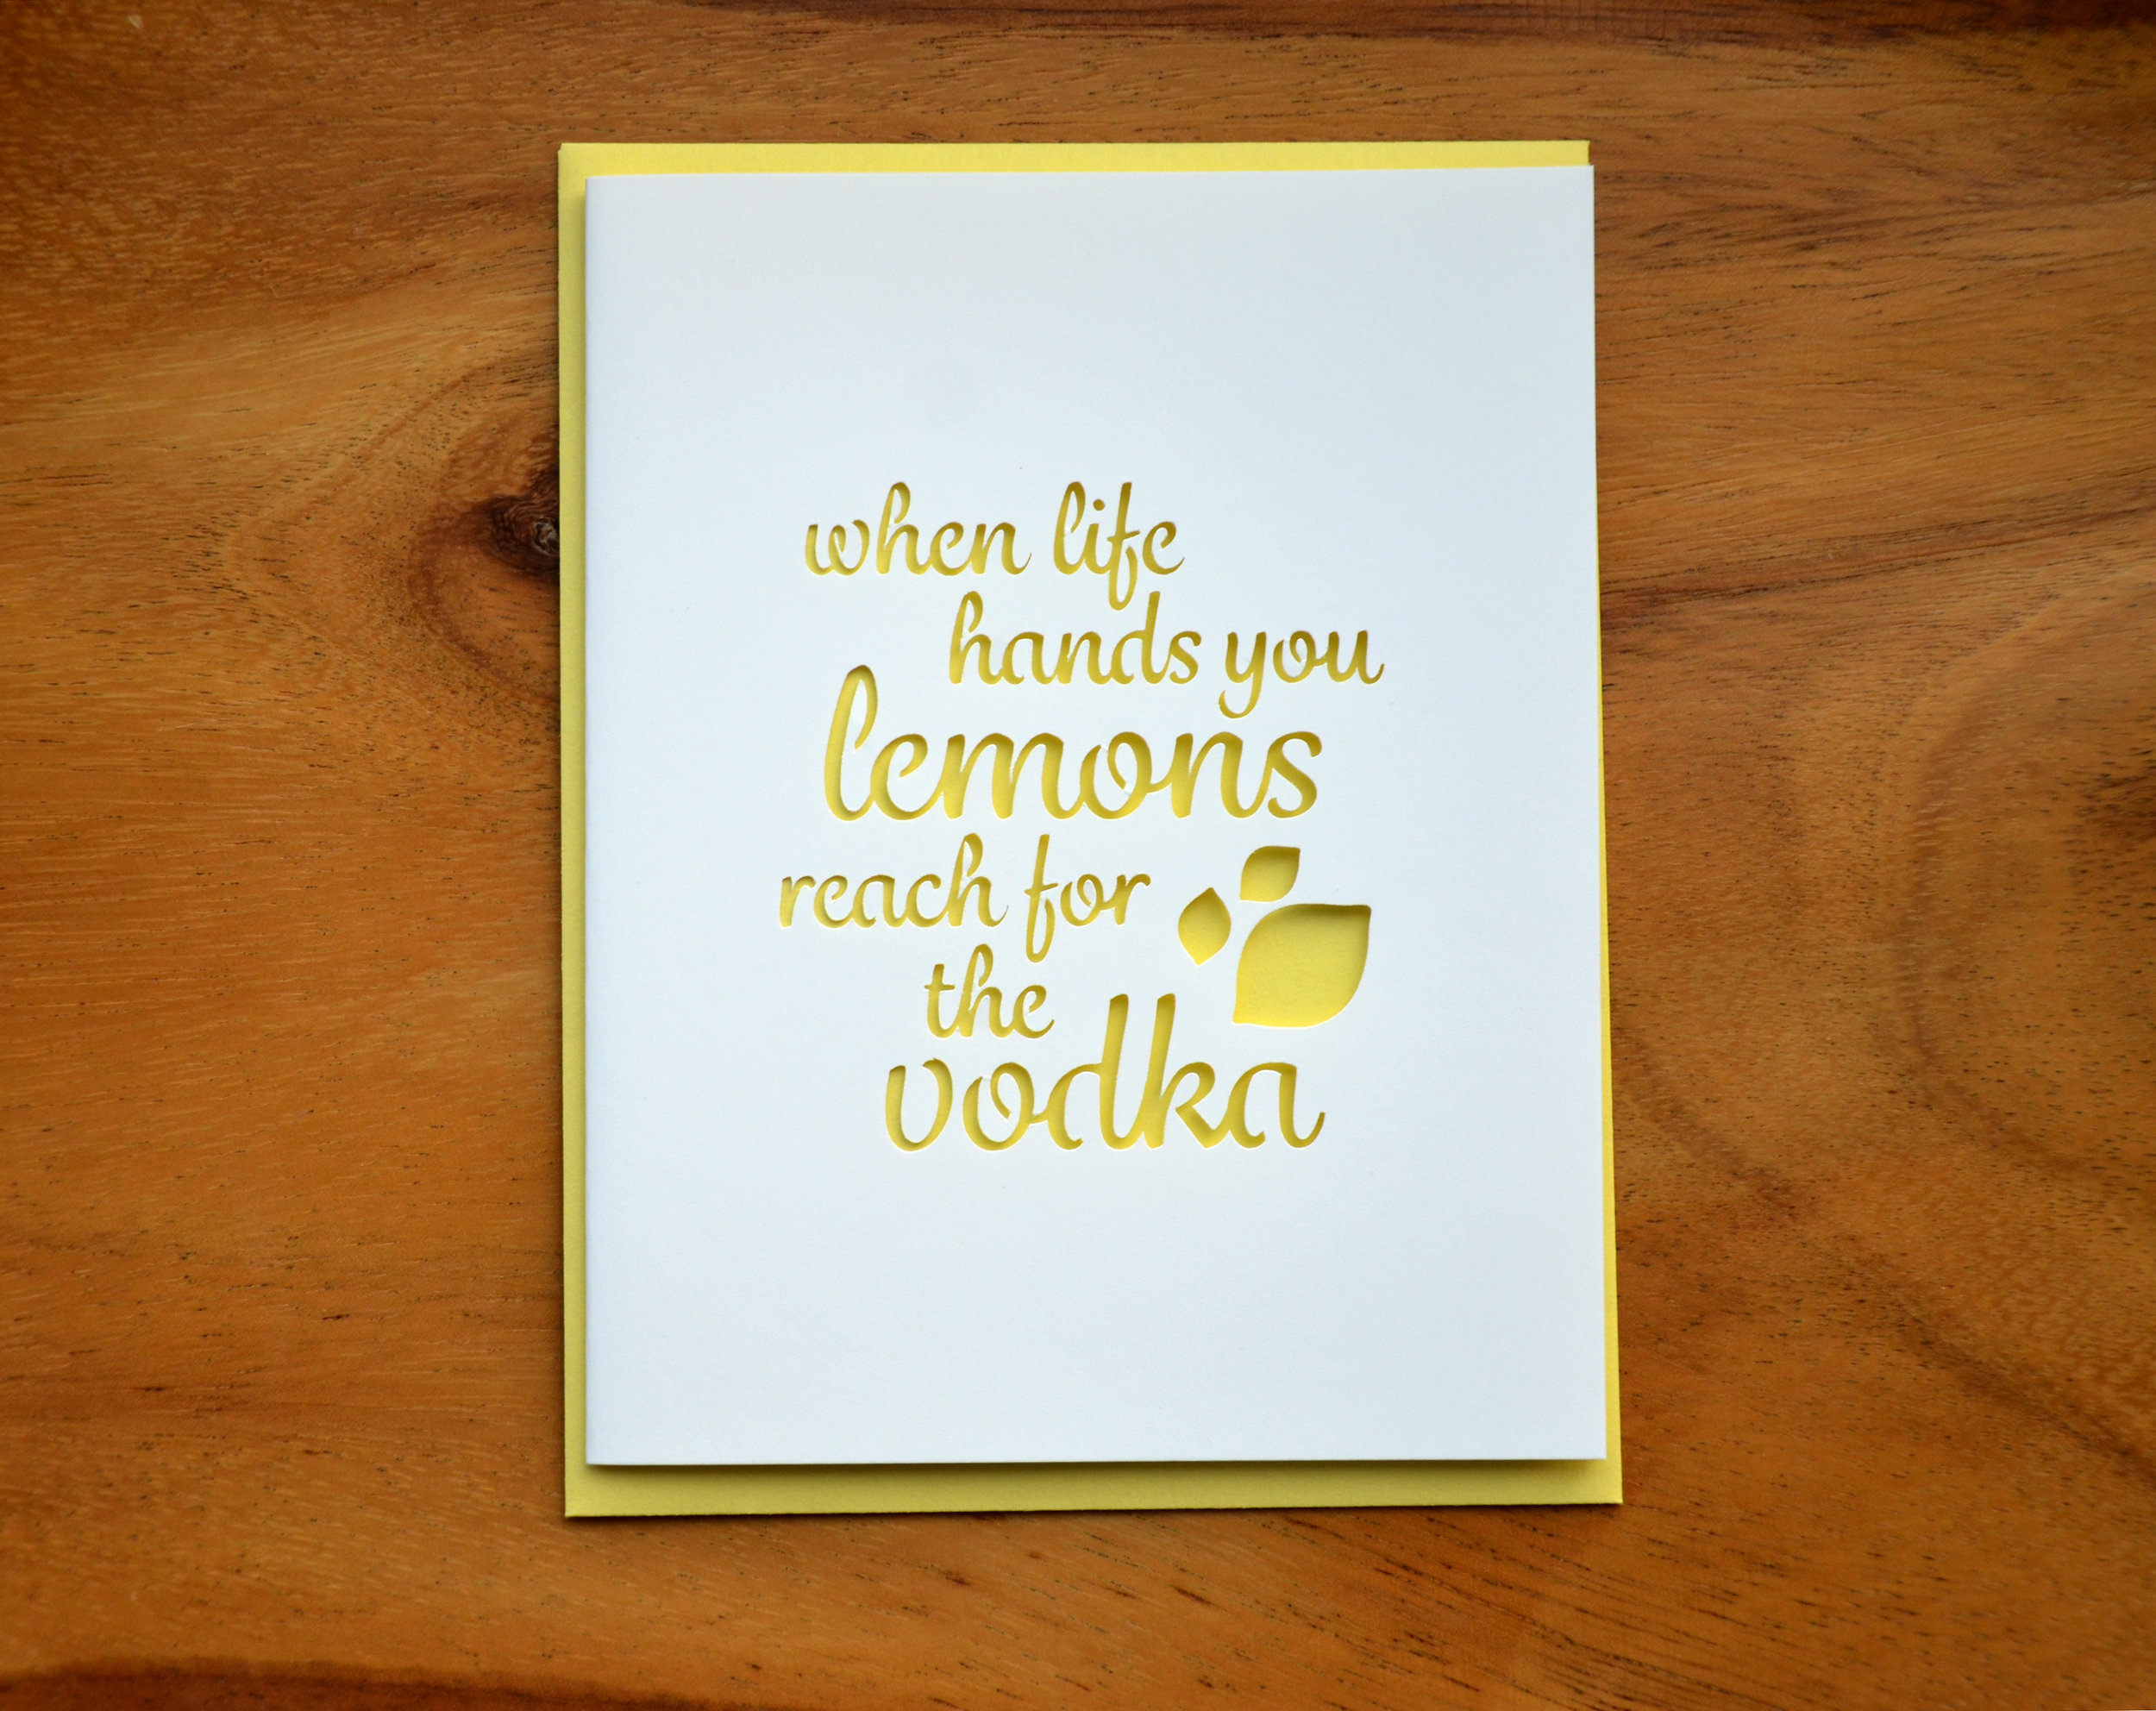 when life
hands you
lemons
reach for
the
vodka